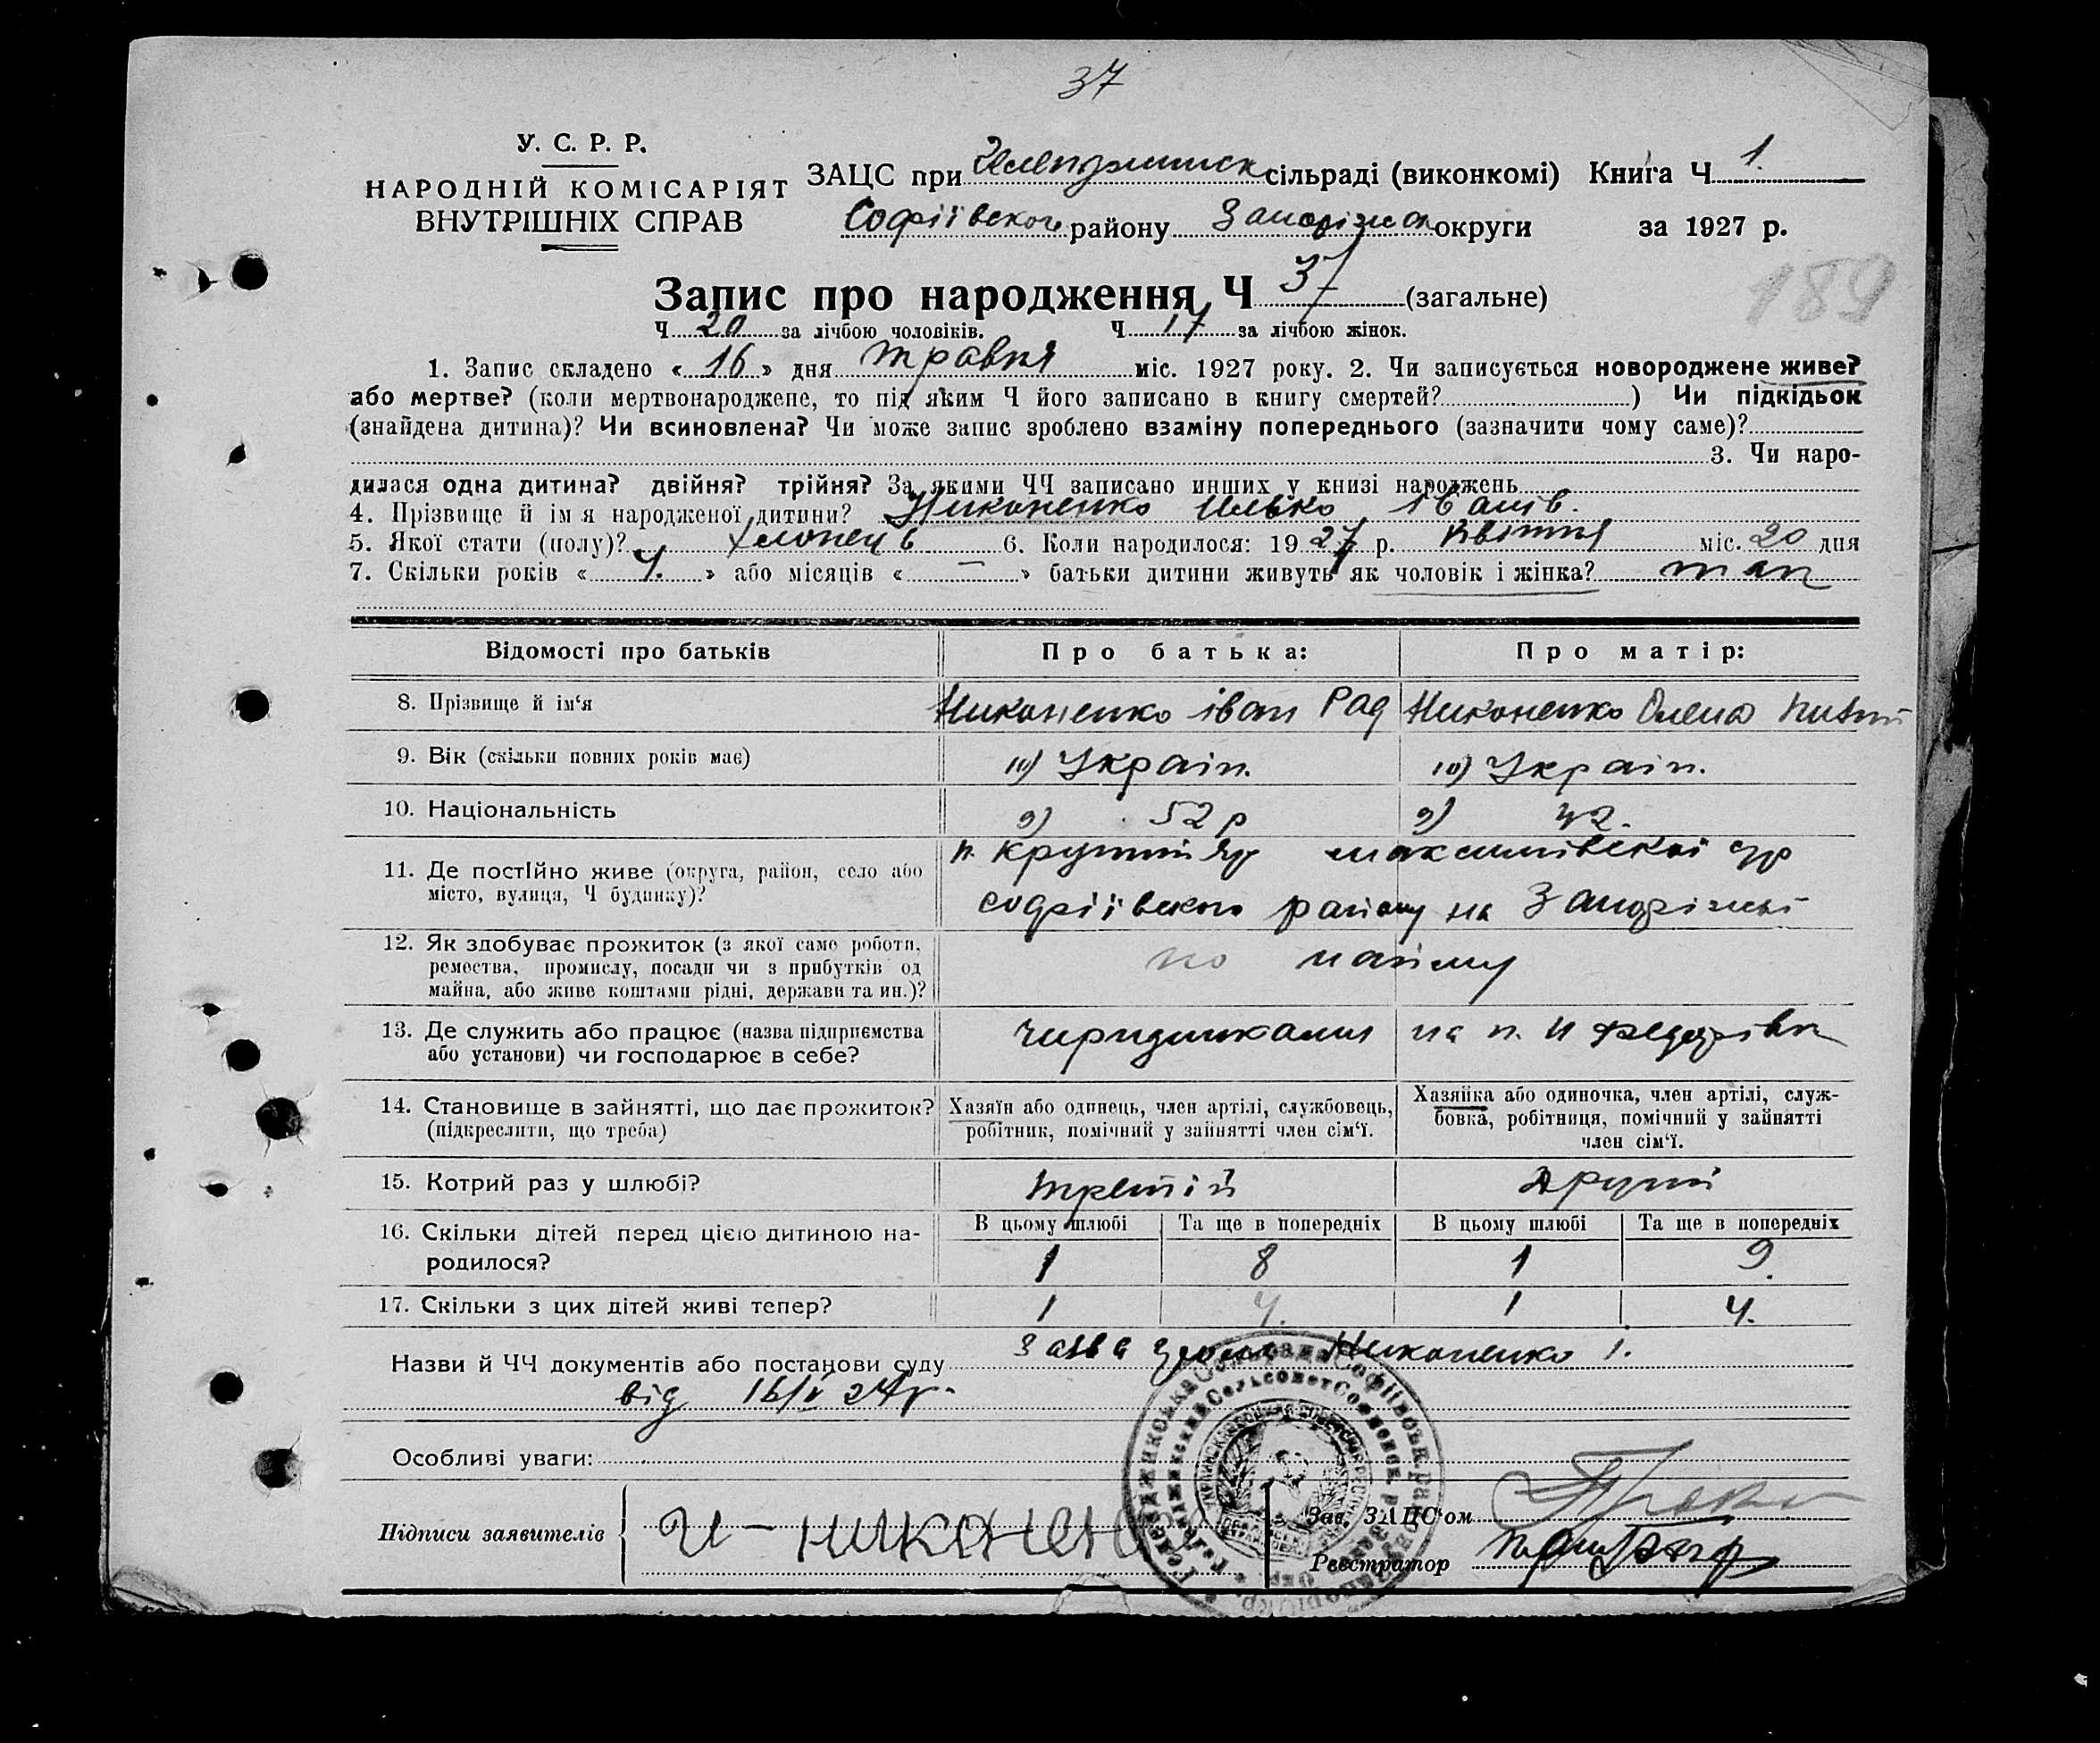 37
У. С. Р. Р.
НАРОДНІЙ КОМІСАРІЯТ
ВНУТРІШНІХ СПРАВ
ЗАЦС при сільраді (виконкомі) Книга Ч 1.
Софіївського району Запоріжск округи за 1927 р.
189
Запис про народження, Ч 37 (загальне)
Ч 20 за лічбою чоловіків. Ч 17 за лічбою жінок.
1. Запис складено « 16 » дня травня міс. 1927 року. 2. Чи записується новороджене живе?
або мертве? (коли мертвонароджене, то під яким Ч його записано в книгу смертей? ) Чи підкідьок
(знайдена дитина)? Чи всиновлена? Чи може запис зроблено взаміну попереднього (зазначити чому саме)?
3. Чи наро-
дилася одна дитина? двійня? трійня? За якими ЧЧ записано инших у книзі народжень
4. Прізвище й ім я народженої дитини? Никоненко Илько Іванів.
5. Якої стати (полу)? хлопець 6. Коли народилося: 1927 р. Квітня міс. 20 дня
7. Скільки років « 4. » або місяців « — » батьки дитини живуть як чоловік і жінка? так
Відомості про батьків Про батька: Про матір:
8. Прізвище й ім‘я Никоненко Іван Рад Никоненко Олена
9. Вік (скільки повних років має) 10) Україн. 10) Україн.
10. Національність 9) 52 р 9) 42.
11. Де постійно живе (округа, район, село або
місто, вулиця, Ч будинку)?
п. Крутий Яр
софіївского району на Запоріжжі
12. Як здобуває прожиток (з якої саме роботи,
ремества, промислу, посади чи з прибутків од
майна, або живе коштами рідні, держави та ин.)?
по найму
13. Де служить або працює (назва підприємства
або установи) чи господарює в себе?
на п. Н Федорівк
14. Становище в зайнятті, що дає прожиток?
(підкреслити, що треба)
Хазяїн або одинець, член артілі, службовець,
робітник, помічний у зайнятті член сім‘ї.
Хазяйка або одиночка, член артілі, служ-
бовка, робітниця, помічний у зайнятті
член сім‘ї.
15. Котрий раз у шлюбі? третій другий
16. Скільки дітей перед цією дитиною на-
родилося?
В цьому шлюбі Та ще в попередніх В цьому шлюбі Та ще в попередніх
1 8 1 9.
17. Скільки з цих дітей живі тепер? 1 4. 1 4.
Назви й ЧЧ документів або постанови суду Заява Никоненко І.
від 16/V 27р.
Особливі уваги:
Підписи заявителів
Зав. ЗАЦС‘ом
Реєстратор